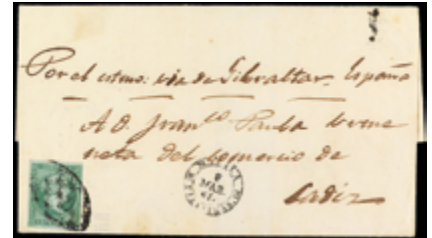 Por el istmo: via de Gibraltar. España
A D. Fran.co Paula
del Comercio de
Cadiz
MAR.